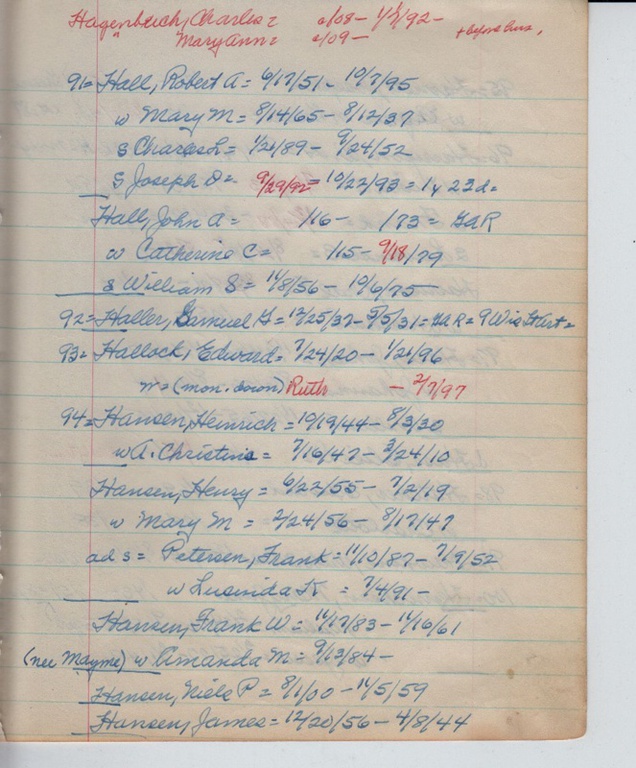 Hagenbuch, Charles = c/08 - 1/ /92 -
Mary Ann = c/09 - + before bur.
91 = Hall, Robert A = 6/17/51 - 10/7/95
w Mary M = 8/14/65 - 8/12/37
s Charles H = 1/21/89 - 9/24/52
S Joseph O = 9/29/92 = 10/22/93 = 1y 23d =
Hall, John A = /16 - /73 = GAR
w Catherine C = /15 - 9/18/79
s William S = 11/8/56 - 10/6/75
92 = Haller, Samuel G = 12/25/37 - 5/5/31 = GAR = 9 Wis
93 = Hallock, Edward = 7/24/20 - 1/21/96
w = (mon. down) Ruth - 2/7/97
94 = Hansen, Heinrich = 10/19/44 - 8/3/30
w A. Christina = 7/16/47 - 3/24/10
Hansen, Henry = 6/22/55 - 7/2/19
w Mary M = 2/24/56 - 8/17/47
ad s = Petersen, Frank = 11/10/87 - 7/9/52
w Lucinda K = 7/4/91 -
Hansen, Frank W = 11/17/83 - 11/16/61
(nee Mayme) w Amanda M = 9/13/84 -
Hansen, Niels P = 8/1/00 - 11/5/59
Hansen, James = 12/20/56 - 4/8/44